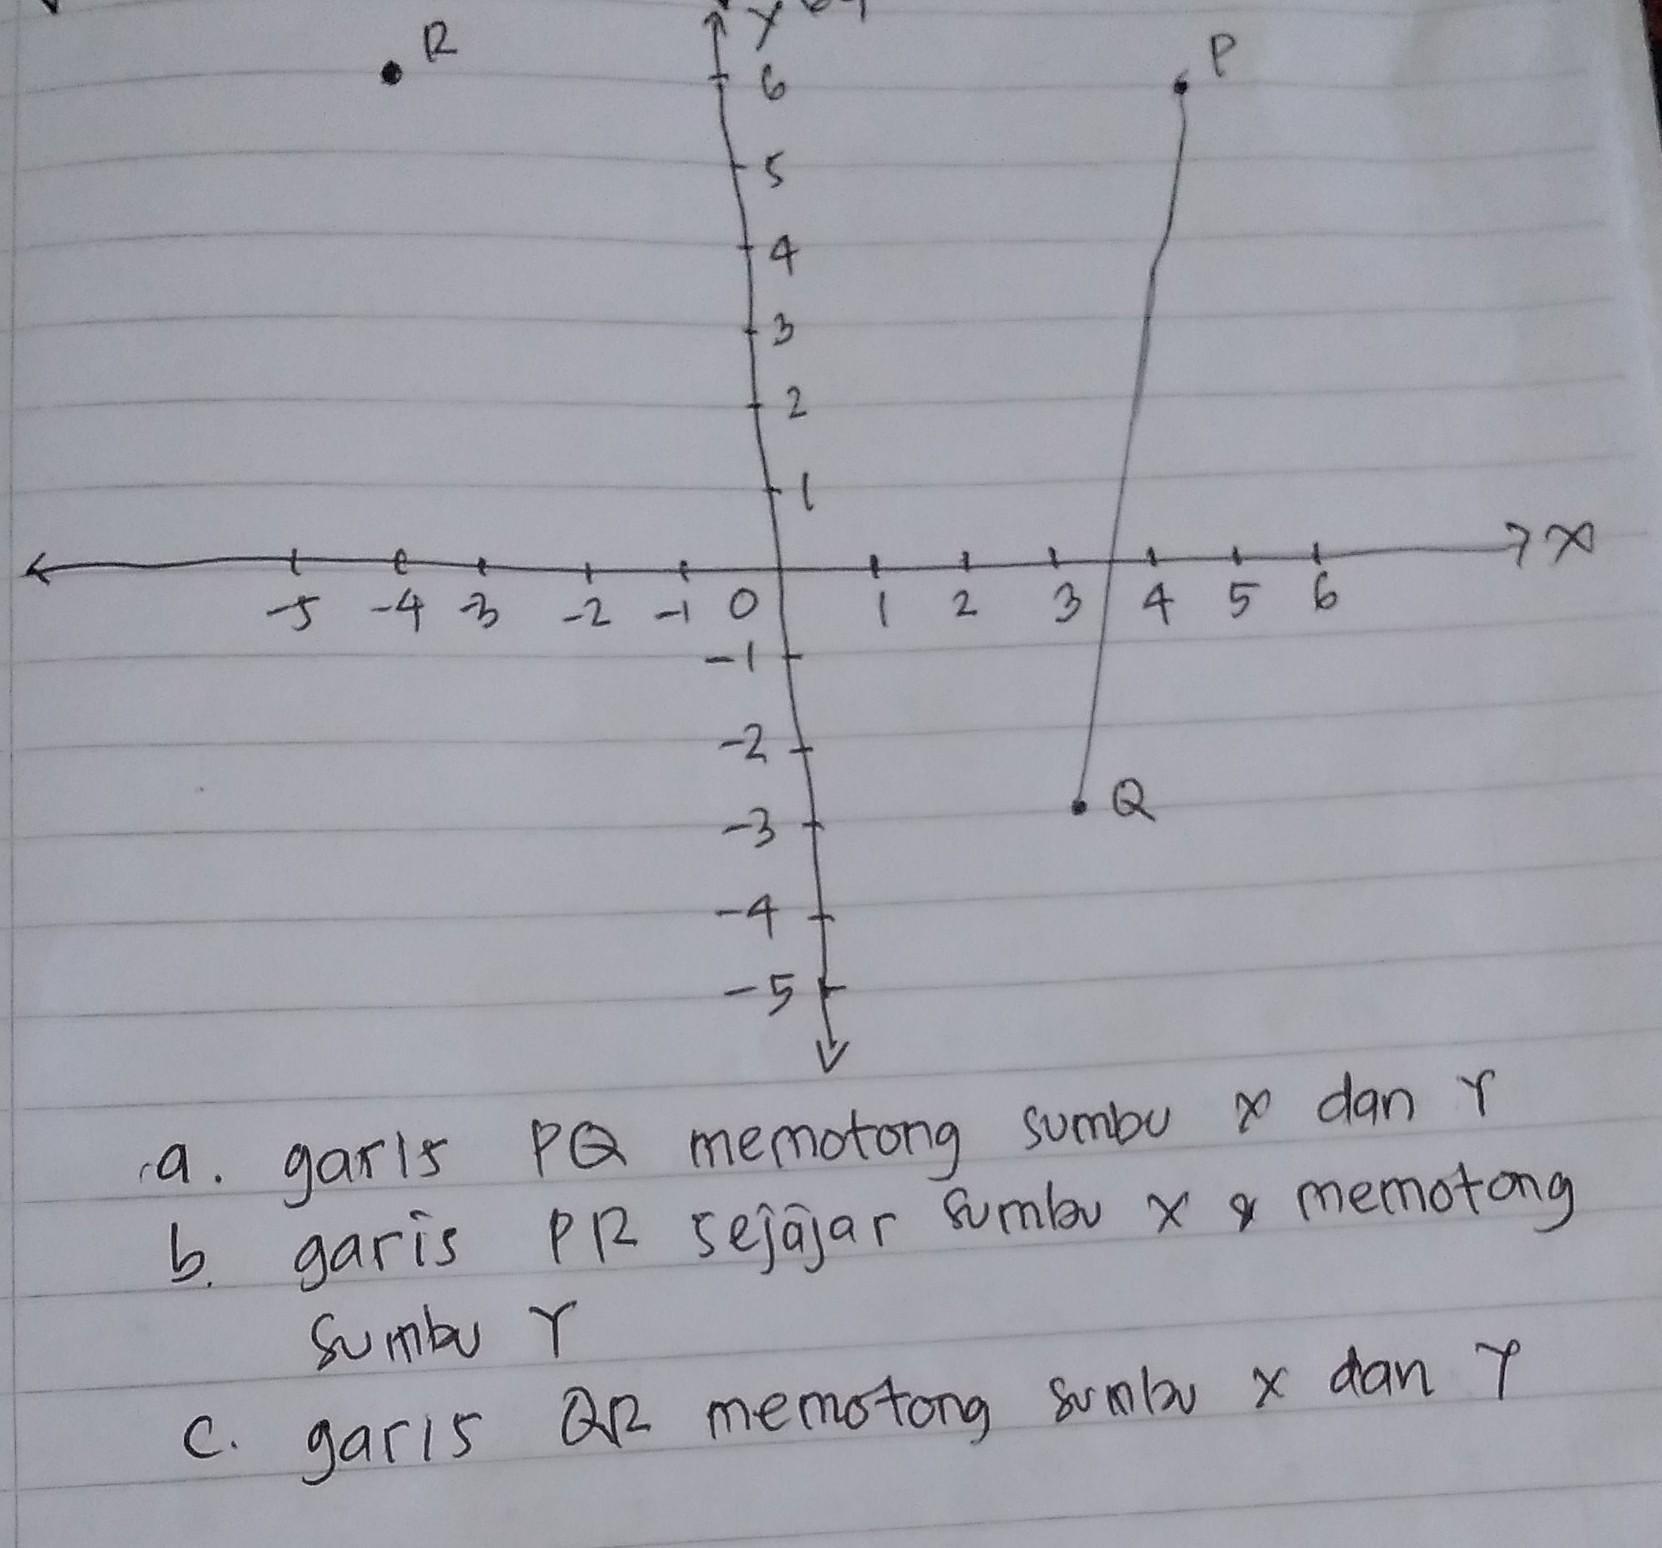 Y
R
P
6
5
4
3
2
1
X
-5 -4 -3 -2 -1 0 1 2 3 4 5 6
-1
-2
Q
-3
-4
-5
a. garis PQ memotong sumbu x dan Y
b. garis PR sejajar sumbu x & memotong
sumbu Y
c. garis QR memotong sumbu x dan Y